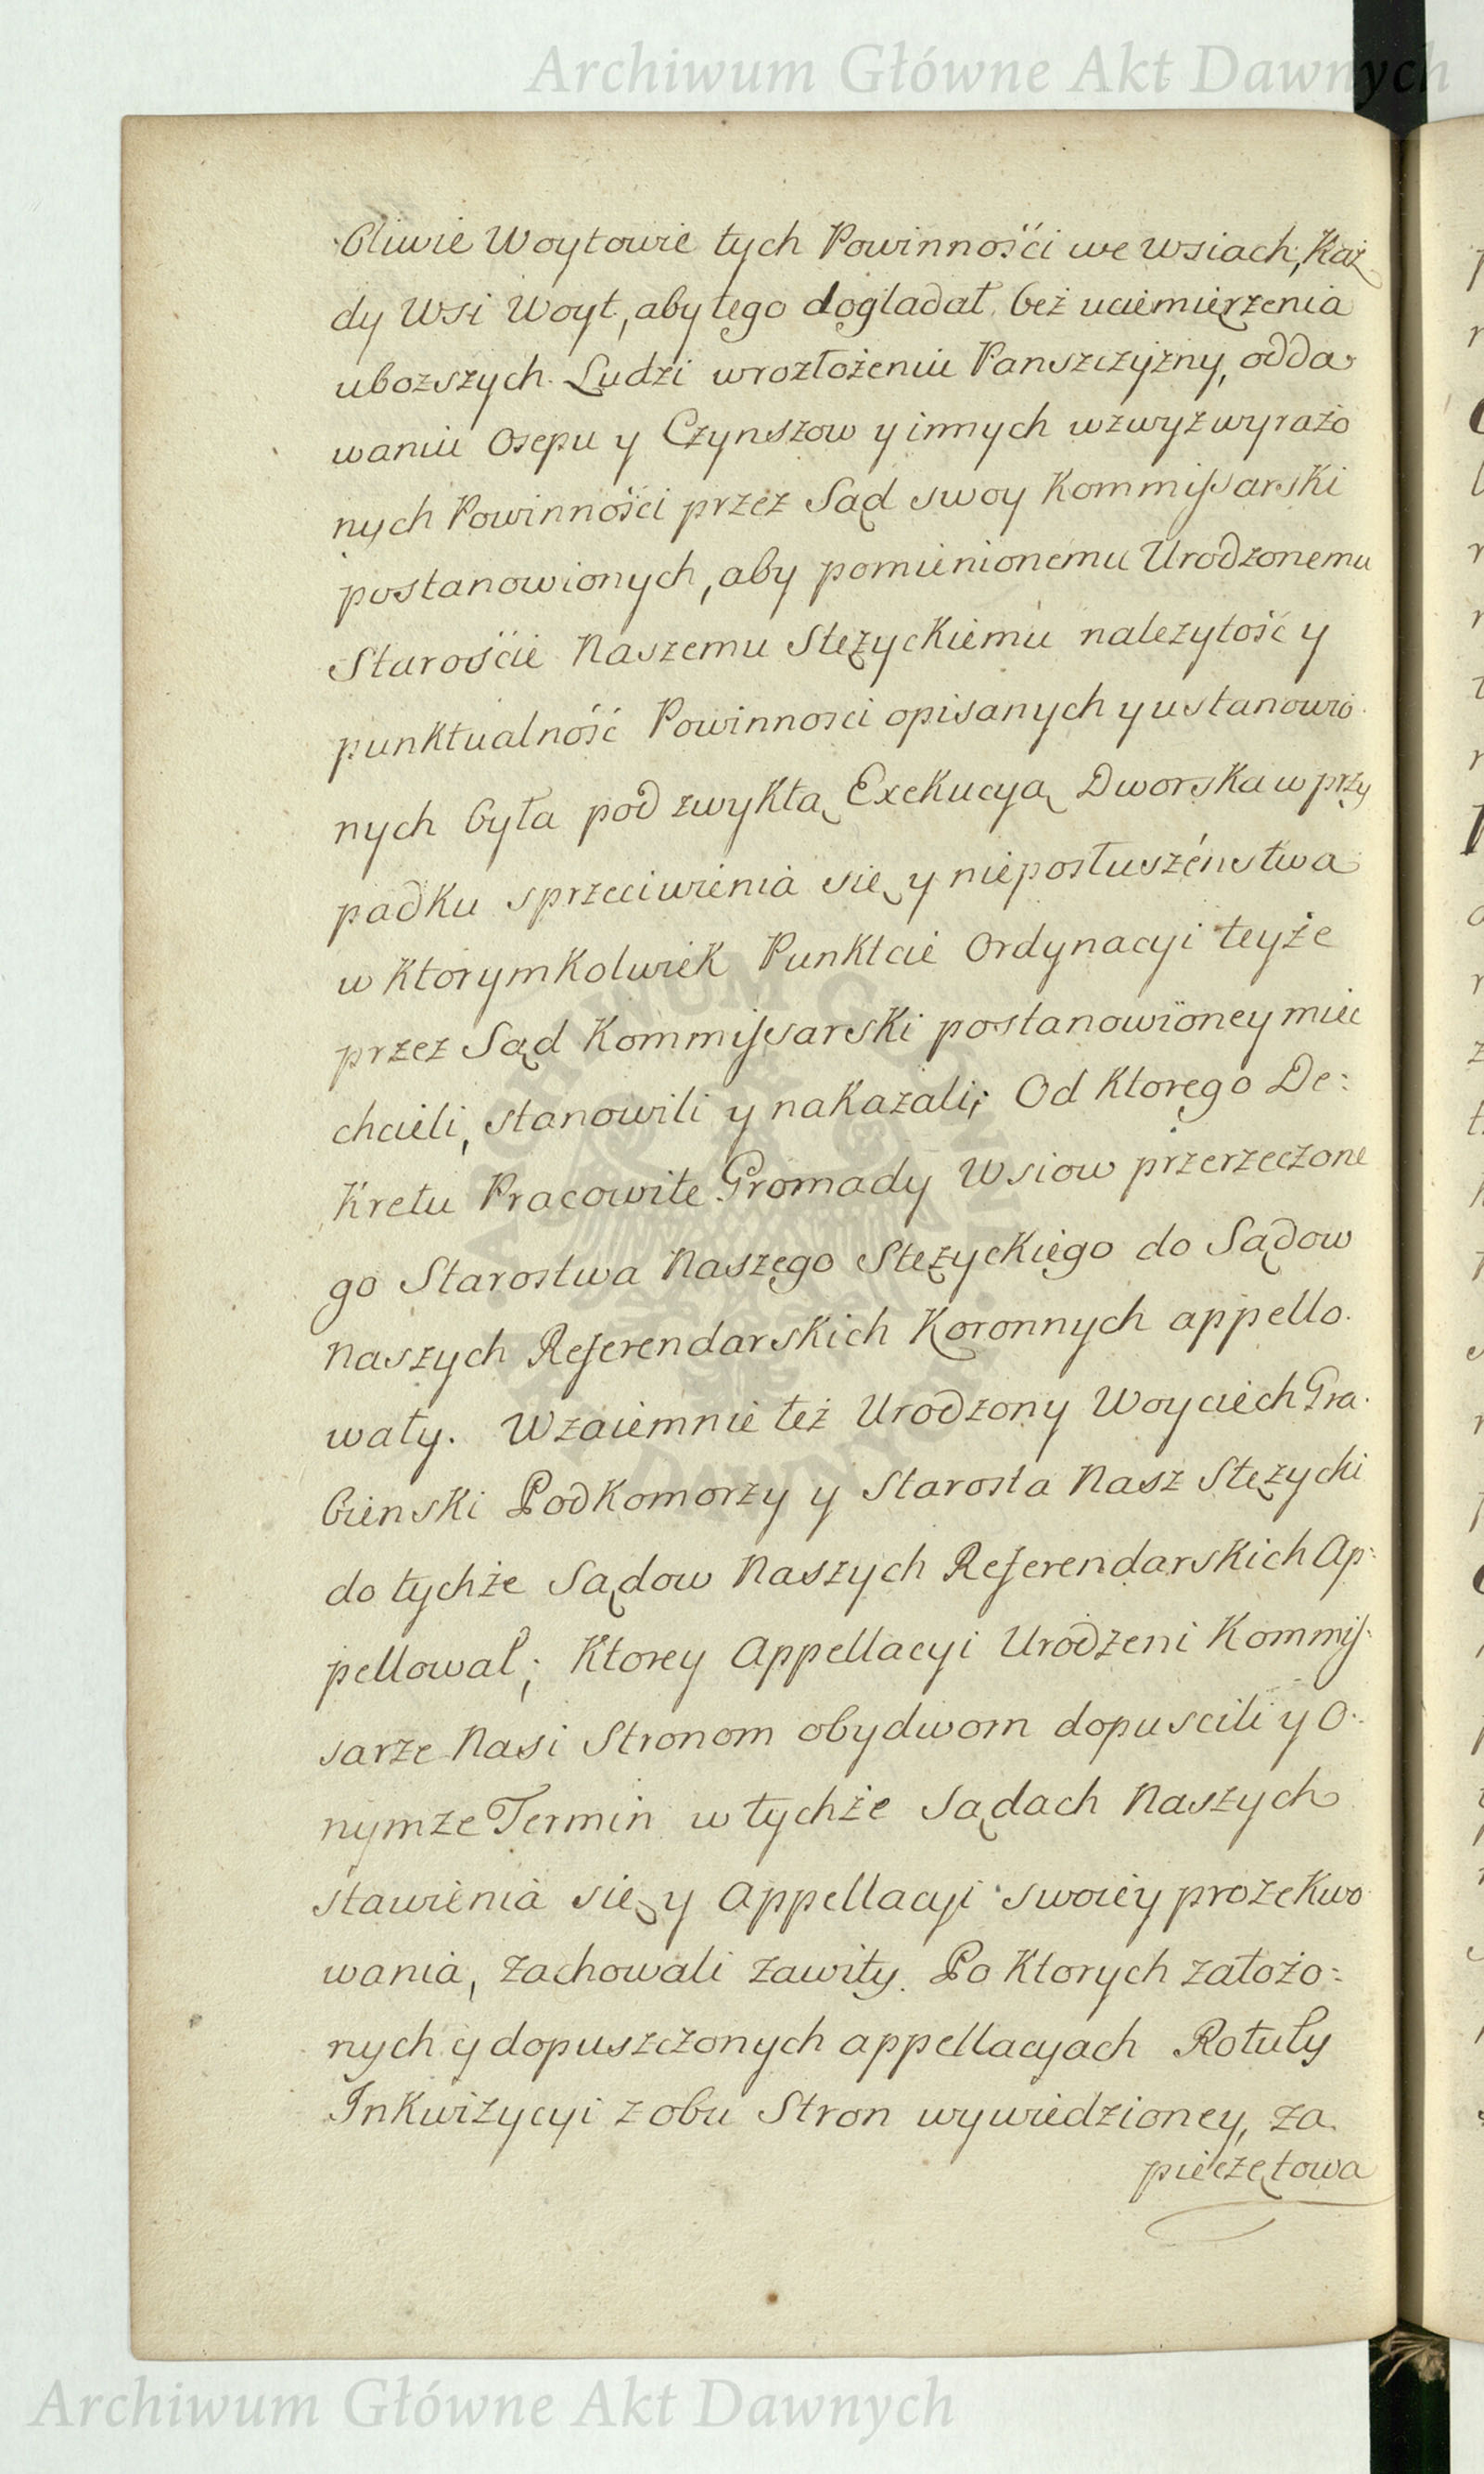 Archiwum Główne Akt Dawnych
bliwie Woytowie tych Powinnośći we wsiach, Każ
dy Wsi Woyt, aby tego dogladał, beż uciemięrzenia
uboższych Ludźi wrozłożeniu Panszczyżny, odda
waniu Osepu y Czynszow y innych wzwyż wyrażo
nych Powinnośći przez Sąd swoy Kommissarski
postanowionych, aby pomienionemu Urodzonemu
Starośćie Naszemu Stężyckiemu należytość y
punktualność Powinnosci opisanych y ustanowio
nych była pod zwykłą Exekucyą Dworską w przy
padku sprzeciwienia się y nieposłuszeństwa
w ktorymkolwiek Punktcie Ordynacyi teyże
przez Sąd Kommissarski postanowioney miec
chcieli, stanowili y nakazali; Od ktorego De:
kretu Pracowite Gromady Wsiow przerzeczone
go Starostwa Naszego Stężyckiego do Sądow
Naszych Referendarskich Koronnych appello.
wały. Wzaiemnie też Urodzony Woyciech Gra.
bienski Podkomorzy y Starosta Nasz Stężycki
do tychże Sądow Naszych Referendarskich Ap:
pellował; Ktorey Appellacyi Urodzeni Kommis:
sarze Nasi Stronom obydwom dopuscili y O:
nymże Termin w tychże Sądach Naszych
stawienia się y Appellacyi swoiey prozekwo
wania, zachowali zawity. Po Ktorych założo:
nych y dopuszczonych appellacyach Rotuły
Inkwizycyi z obu Stron wywiedzioney, za
pieczętowa
Archiwum Główne Akt Dawnych